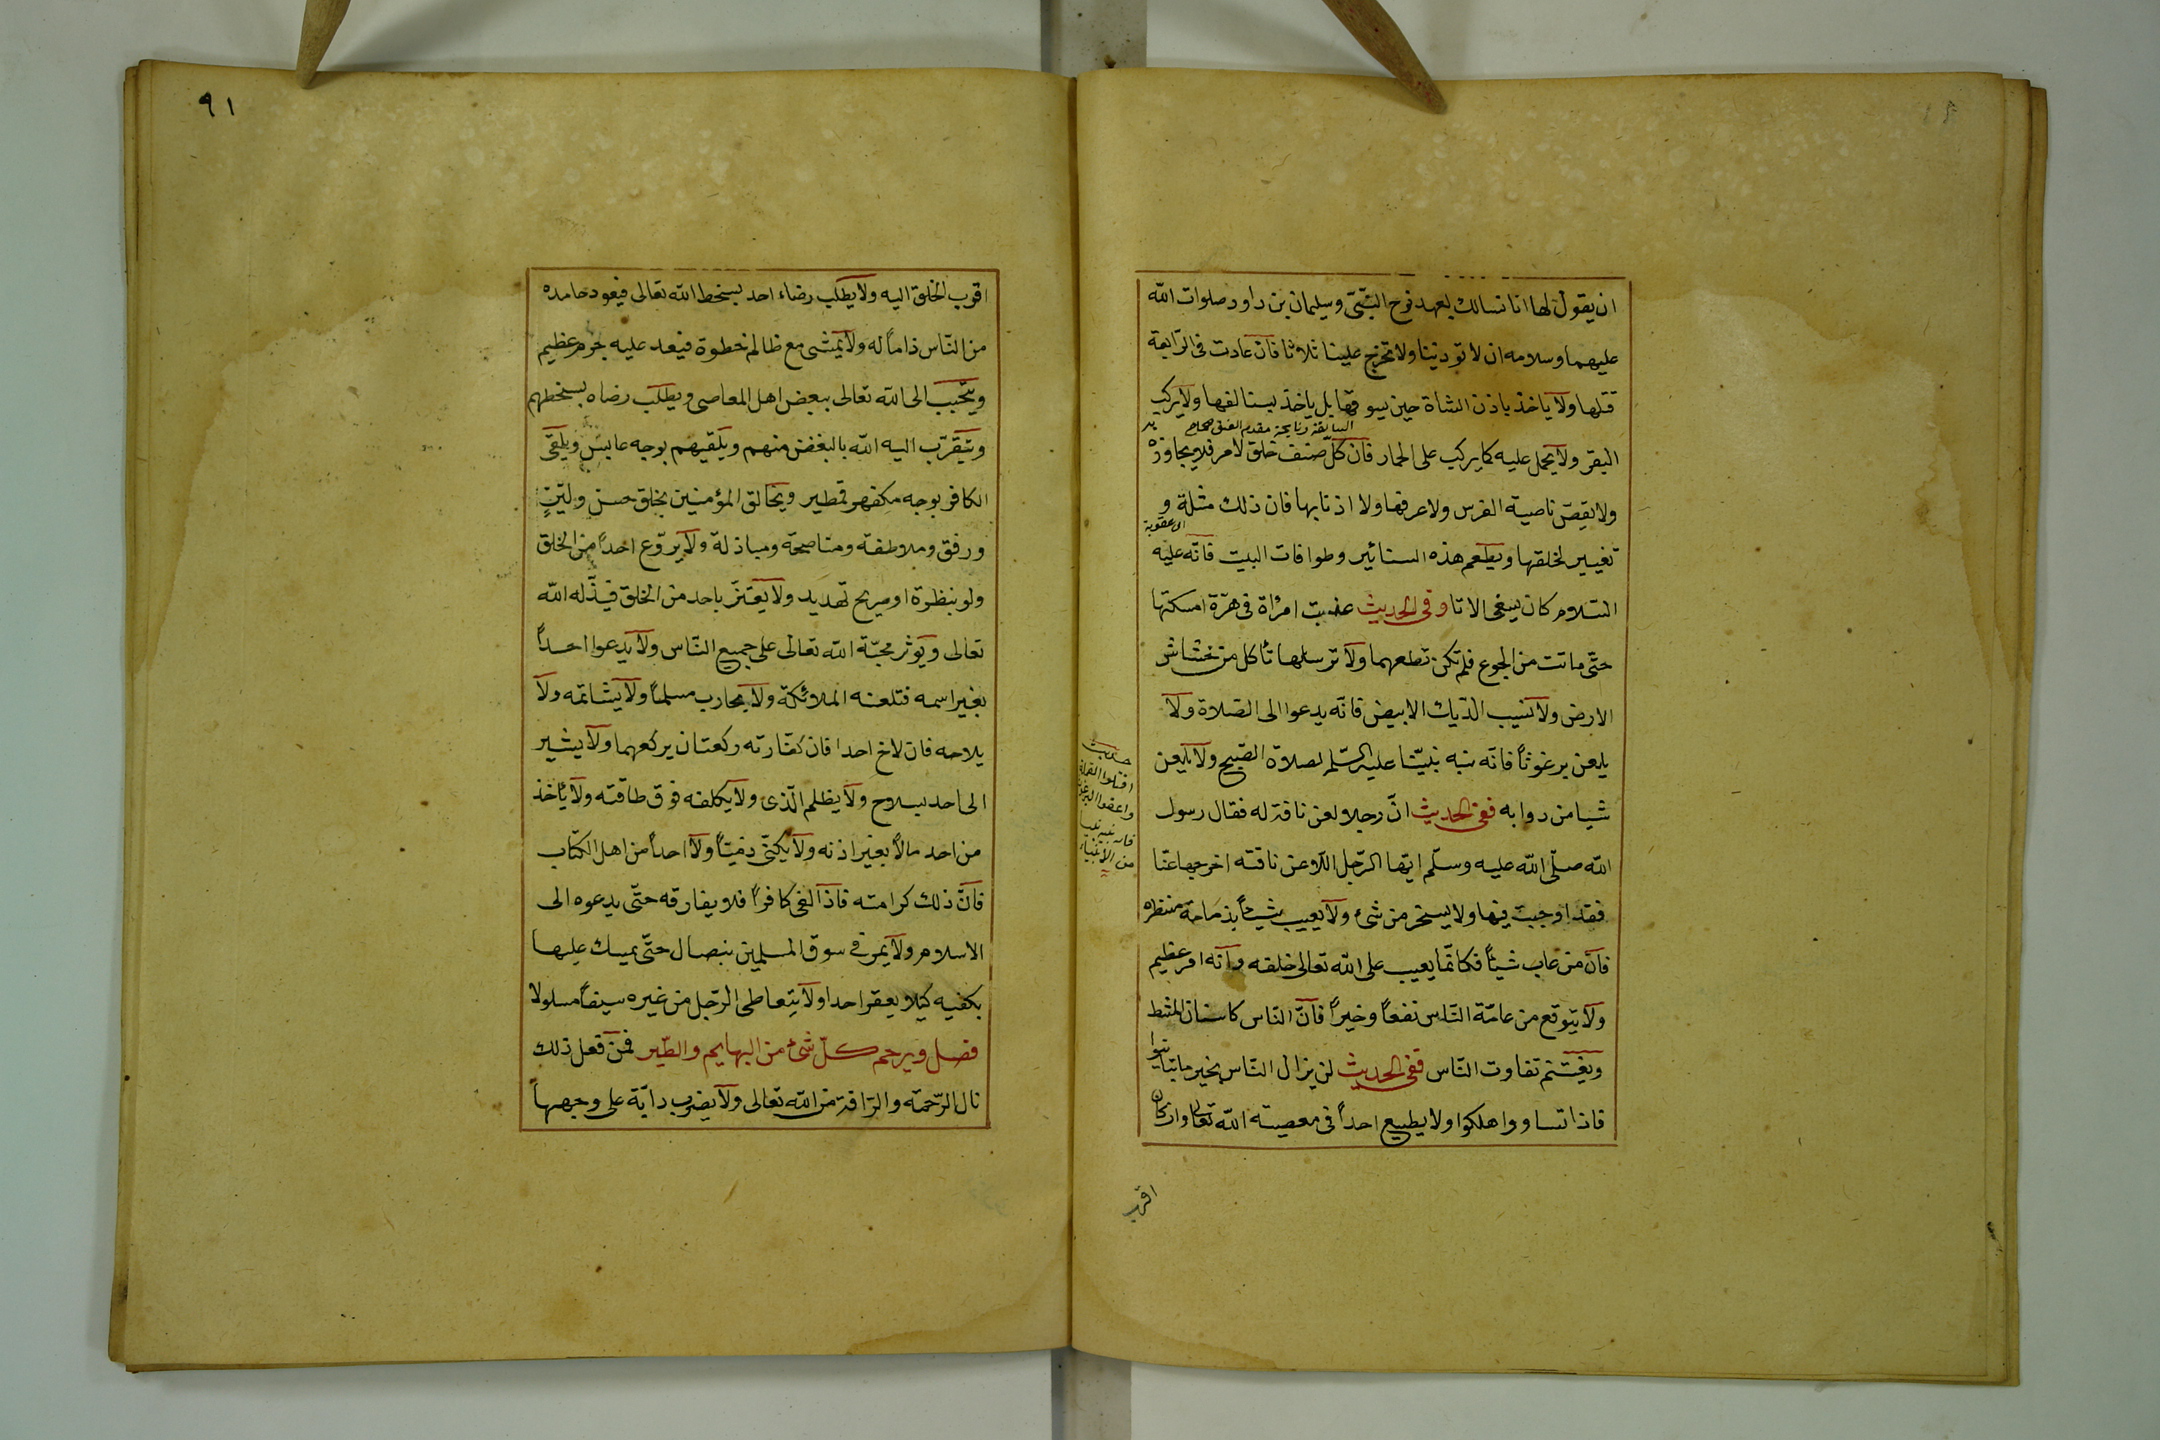 ان يقول لها انا نسالك بعهد نوح النبىّ وسليمان بن داود صلوات الله
عليهما وسلامه ان لا تودنينا ولا تخرج علينا ثلاثا فان عادت فى الرّابعة
قتلها ولا ياخذ باذن الشاة حين يسوقها بل ياخذ بسالفها ولا يركب
السالفة ناحية مقدم العنق صحاح
البقر ولا يحمل عليه كما يركب على الحمار فان كلّ صنف خلق لامر فلا يجاوزه
ولا يقصّ ناصية الفرس ولا عرفها ولا اذنابها فان ذلك مثلة و
اى عقوبة
تغيير لخلقها ويطعم هذه السنانير وطوافات البيت فانّه عليه
السّلام كان يسغى الانا وفى الحديث عذبت امراة فى هرّة امسكتها
حتّى ماتت من الجوع فلم تكن تطعمها ولا ترسلها تأكل من خشاش
الارض ولا يسب الدّيك الابيض فانّه يدعوا الى الصّلاة ولا
يلعن برغوثاً فانّه نبه نبيّنا عليه السّلم لصلاة الصّبح ولا يلعن
شيا من دوابه ففى الحديث انّ رجلا ولعن ناقة له فقال رسول
الله صلّى الله عليه وسلّم ايّها الرّجل اللّاعن ناقته اخرجها عنّا
فقد اوجبت فيها ولا يسخر من شىء ولا يعيب شيئاً بذمامة منظره
فانّ من عاب شيئاً فكانّما يعيب على الله تعالى خلقه وانّه امر عظيم
ولا يتوقع من عامّة النّاس نفعاً وخيراً فانّ النّاس كاسنان المشط
ويغتنم تفاوت النّاس ففى الحديث لن يزال النّاس بخير ما تباينوا
فاذا تساووا هلكوا ولا يطيع احداً فى معصية الله تعالى وان كان
حديث
اقتلوا القملة
من الانبياء
اقرب
٩١
اقرب الخلق اليه ولا يطلب رضاء احد بسخط الله تعالى فيعود حامده
من النّاس ذامّاً له ولا يمشى مع ظالم خطوة فيعد عليه جرم عظيم
ويتحبب الى الله تعالى ببغض اهل المعاصى ويطلب رضاه بسخطهم
ويتقرّب اليه الله بالبغض منهم ويلقيهم بوجه عابس ويلقى
الكافر بوجه مكفهر قمطير ويخالق المؤمنين بخلق حسن ولين
ورفق وملاطفة ومناصحة ومباذلة ولا يروّع احداً من الخلق
ولو بنظرة او بريح تهديد ولا يعتزّ باحد من الخلق فيذّله الله
تعالى ويؤثر محبّة الله تعالى على جميع النّاس ولا يدعوا احداً
بغير اسمه فتلعنه الملائكة ولا يحارب مسلماً ولا يشاتمه ولا
يلاحه فان لاخ احدا فان كفّارته ركعتان يركعهما ولا يشير
الى احد بسلاح ولا يظلم الذّى ولا يكلفه فوق طاقته ولا يأخذ
من احد مالاً بغير اذنه ولا يكنّى ذميّاً ولا احداً من اهل الكتاب
فانّ ذلك كرامته فاذا لقى كافراً فلا يفارقه حتّى يدعوه الى
الاسلام ولا يمر فى سوق المسلمين بنصال حتّى يمسك عليها
بكفيه كيلا يعقر احدا ولا يتعاطى الرّجل من غيره سيفاً مسلولا
فصل ويرحم كلّ شىء من البهايم والطّير فمن فعل ذلك
نال الرّحمة والرّافة من الله تعالى ولا يضرب دابّة على وجهها